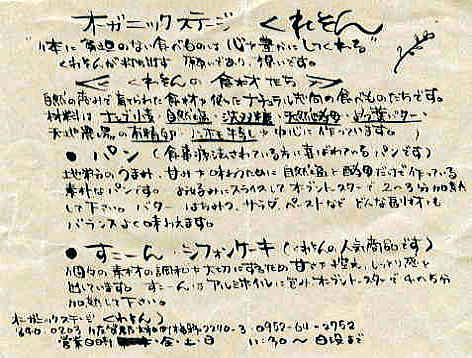 オガニックステージ くれそん
"体に 無理のない食べものは 心を豊かにしてくれる"
くれそんが 願いであり 想いです。
≪ くれそんの 食材たち ≫
自然の恵みで育てられた食材を使ったナチュラル志向の食べものたちです。
材料は 自然塩 天然酵母 バター
有精卵 中心に 作っています。
● パン (食事療法されている方に喜ばれているパンです)
地粉のうまみ、甘みを味わうために 自然塩と酵母だけで作っている
素朴なパンです。 お好みにスライスして オーブントースターで 2〜3分加熱
して下さい。 バター はちみつ、サラダ、ペーストなど どんな食材も
バランスよく味わえます。
● すこーん・シフォンケーキ (くれそんの人気商品です)
個々の素材の調和を大切にするため 甘さを控え、しっとり感を
出しています。 すこーんは アルミホイルに包み オーブントースターで 4〜5分
加熱して下さい。
オーガニックステージ くれそん
840-0203 2240-3 0952-64-2752
営業日時 ・金・土・日 11:30〜 日没まで